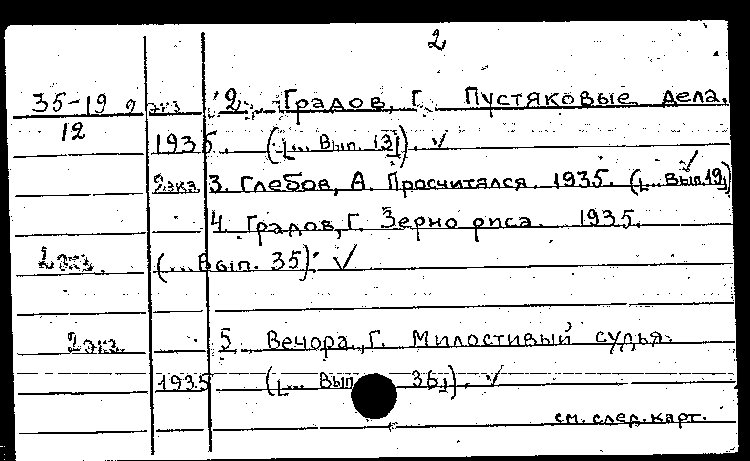 2
35-19 2 экз 2. Градов, Г. Пустяковые дела.
12
1935. ([... Вып. 13]). ✓
2экз. 3. Глебов, А. Просчитался. 1935. ([... Вып. 19]) ✓
4. Градов, Г. Зерно риса. 1935.
2экз. (... Вып. 35). ✓
2экз. 5. Вечора, Г. Милостивый судья.
1935 ([... Вып 36]). ✓
см. след. карт.